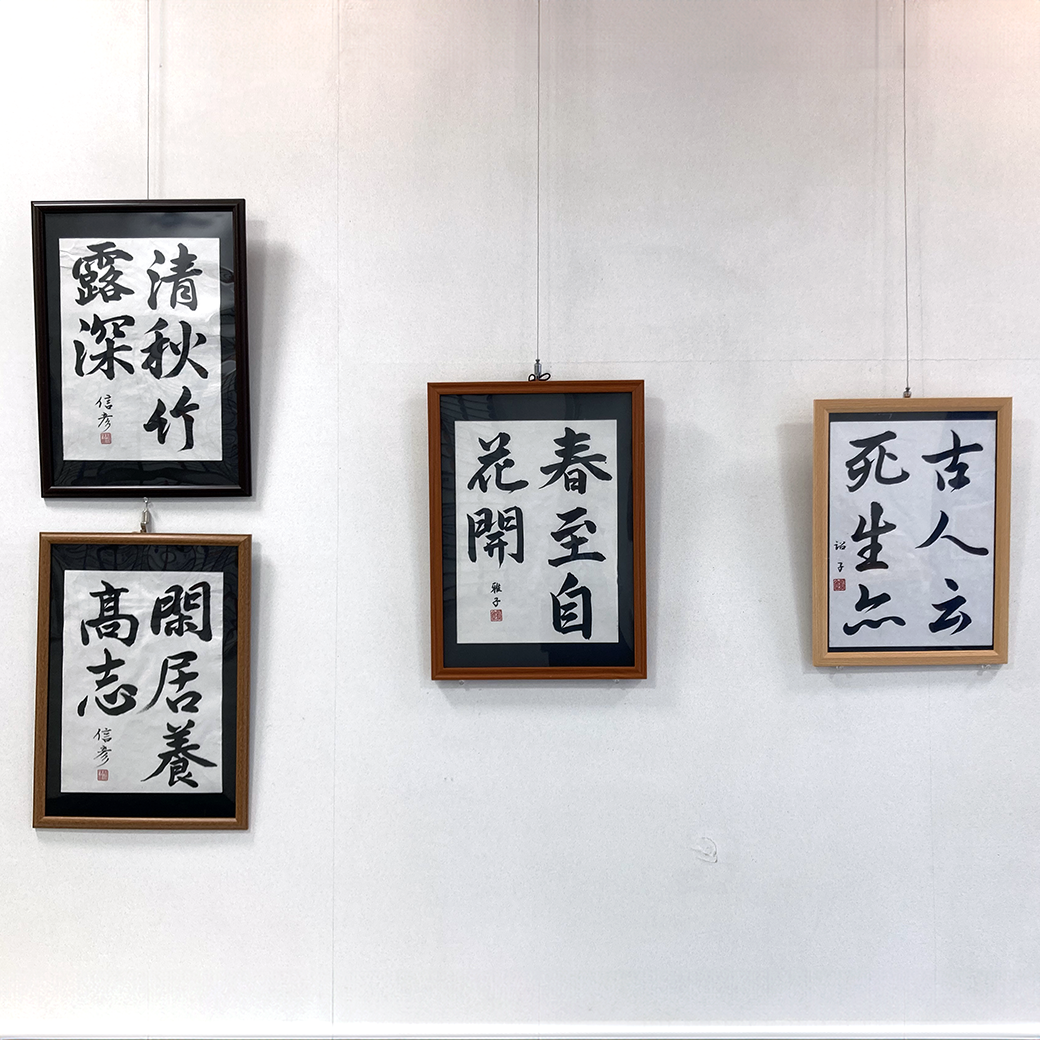 清秋竹
露深
信彦
閑居養
高志
信彦
春至自
花開
雅子
古人云
死生亦
裕子